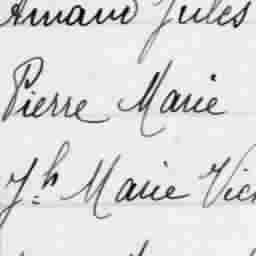 Armand Jules
Pierre Marie
Jh Marie